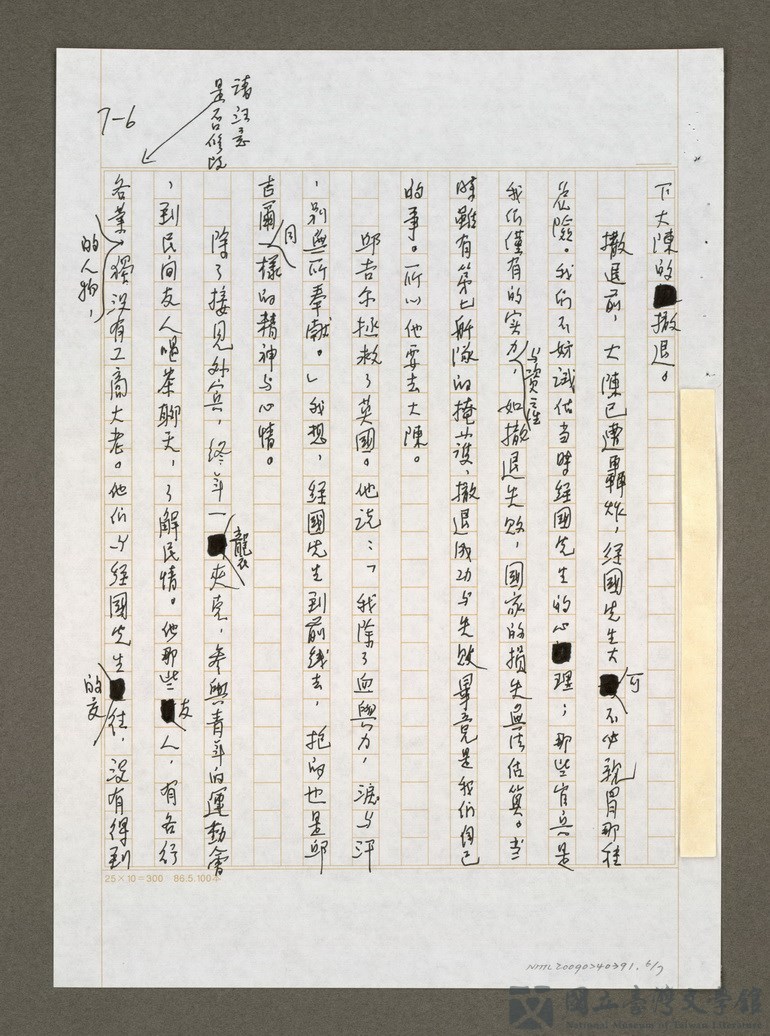 請注意
是否修改
7-6
下大陳的撤退。
撤退前,大陳已遭轟炸,經國先生大可不必親冒那種
危險。我們不妨試估当時經國先生的心理;那些官兵是
我们僅有的实力与資產,如撤退失敗,國家的損失無法估算。当
時雖有第七舰隊的掩護,撤退成功与失敗畢竟是我们自己
的事。所以他要去大陳。
邱吉尔拯救了英國。他說:「我除了血與力,淚与汗
,別無所奉獻。」我想,經國先生到前线去,抱的也是邱
吉爾同樣的精神与心情。
除了接見外賓,終年一襲夾克,参與青年的運動會
,到民间友人喝茶聊天,了解民情。他那些友人,有各行
各業的人物,獨沒有工商大老。他们与經國先生的交往,沒有得到
25×10=300 86.5.100本
NMTL20090240391.6/7
國立臺灣文學館
National Museum of Taiwan Literature